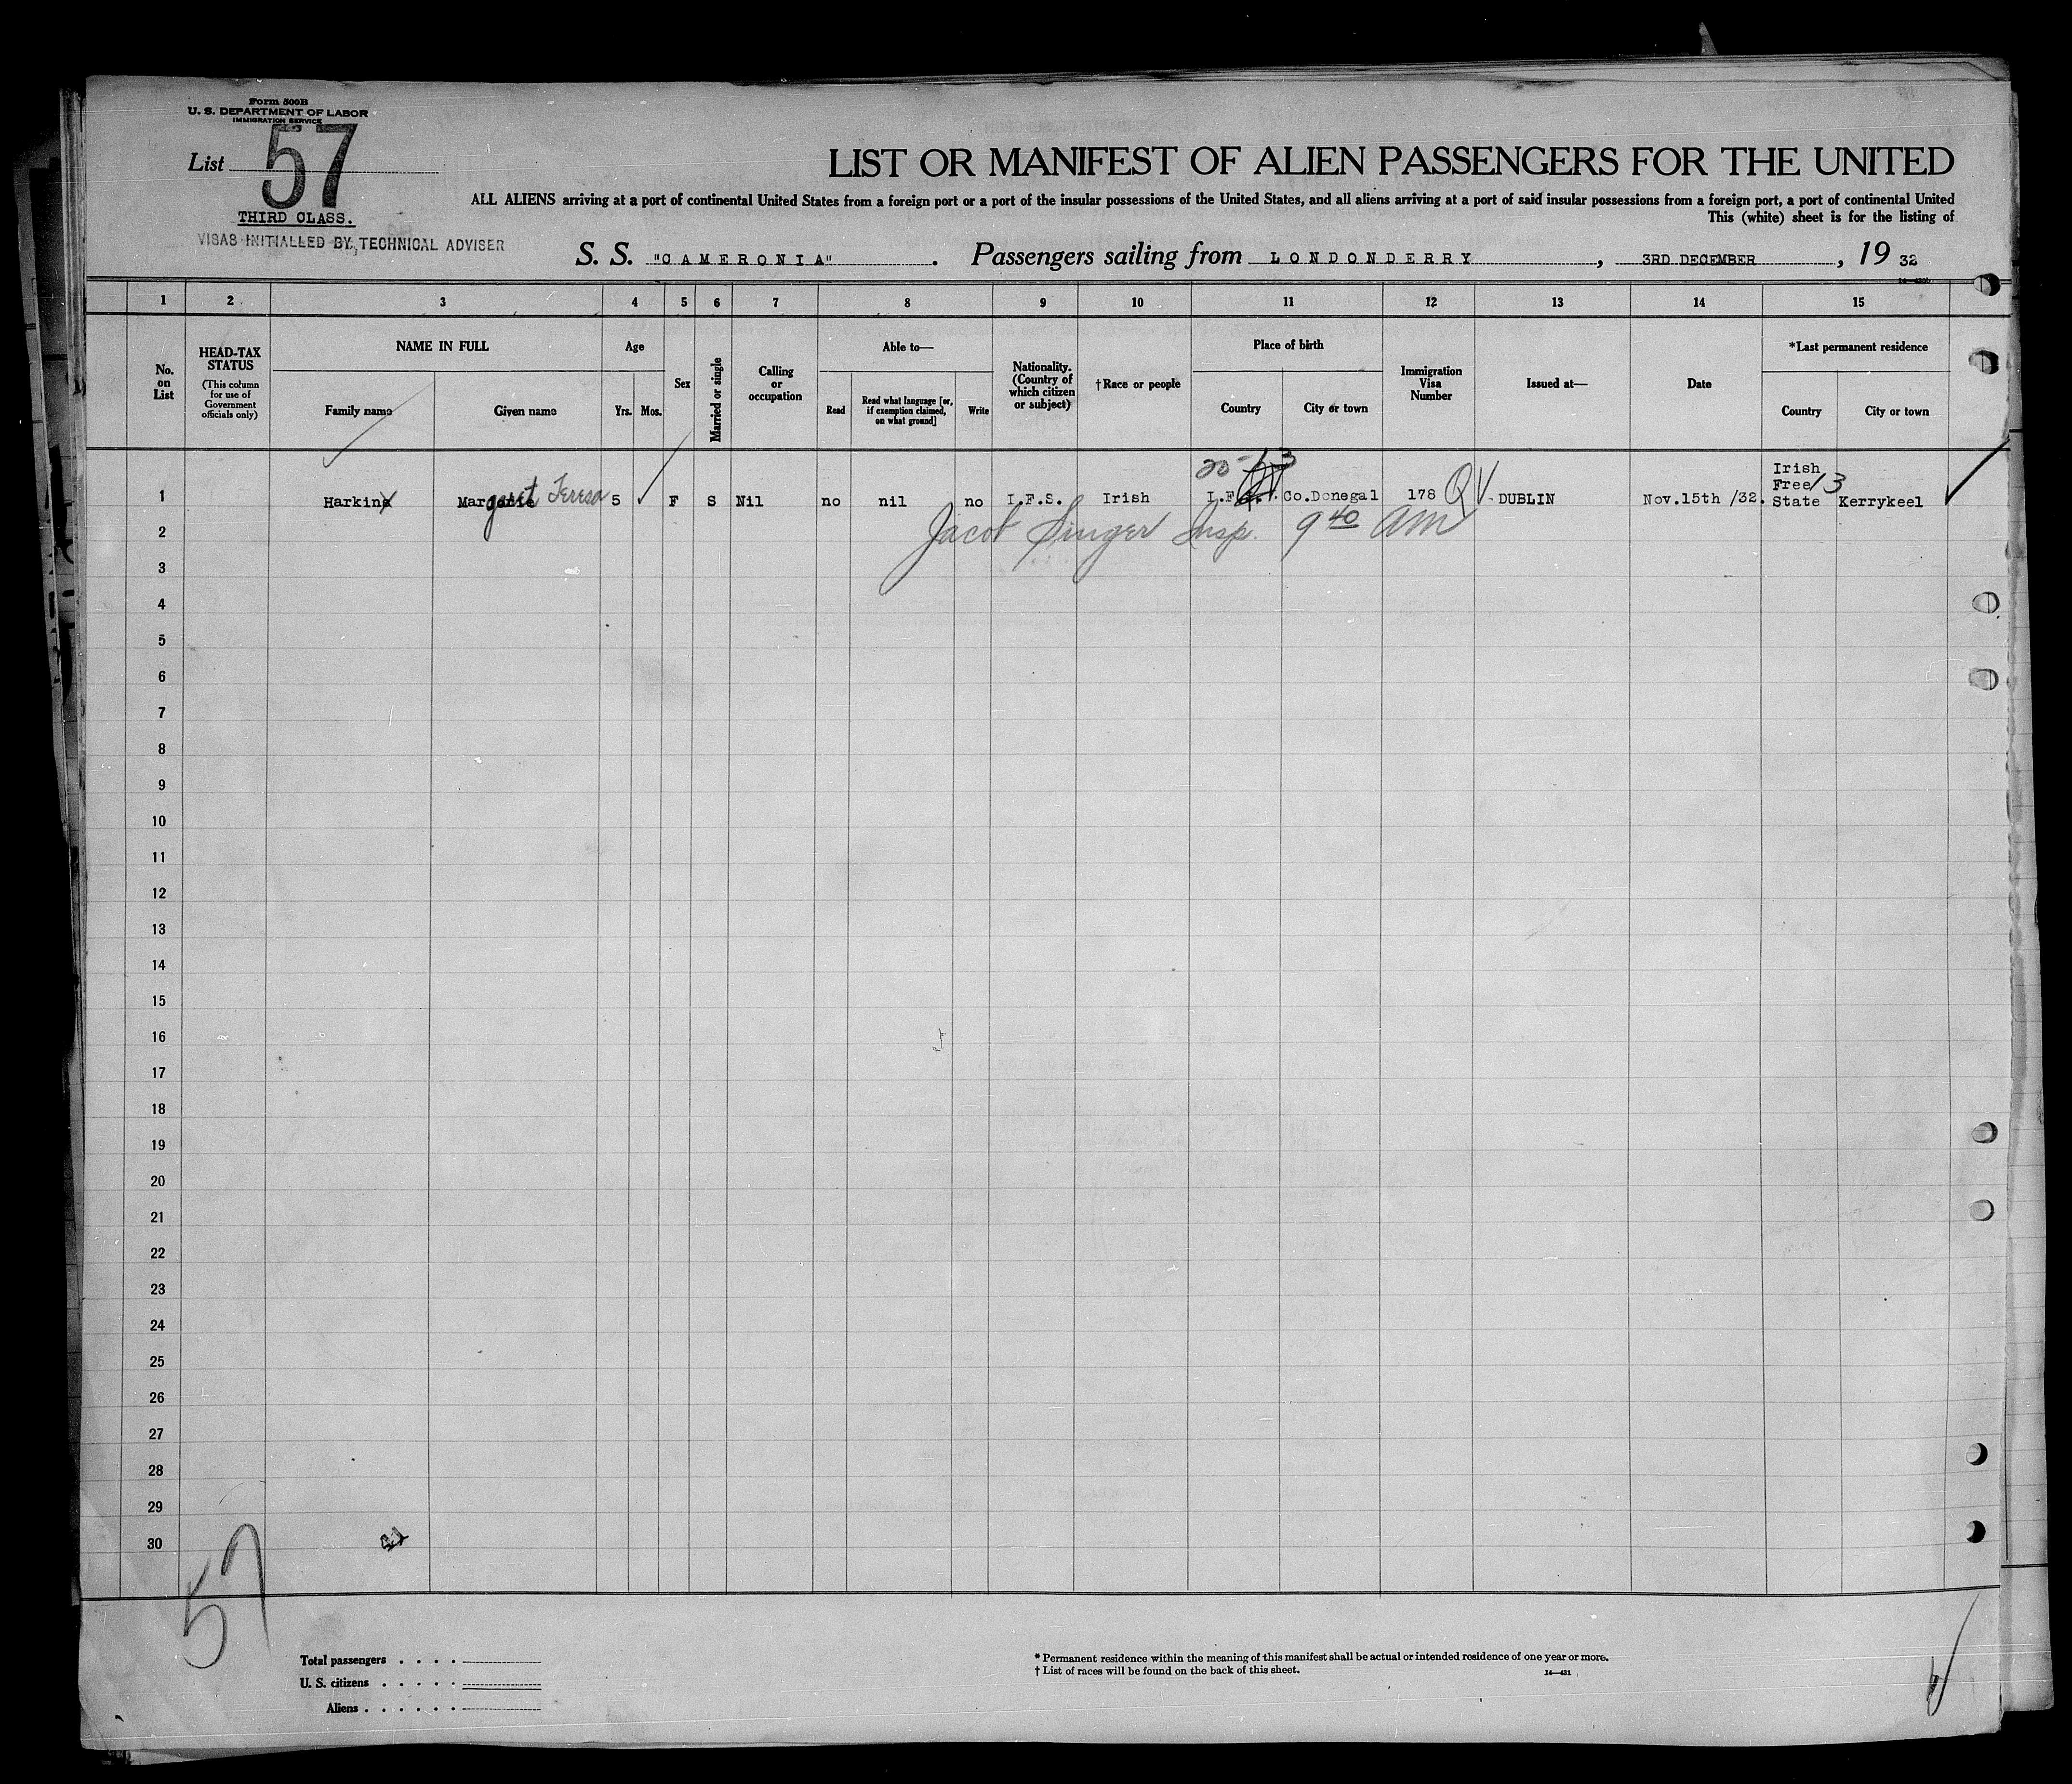 Form 500B
U. S. DEPARTMENT OF LABOR
IMMIGRATION SERVICE
List 57
THIRD CLASS.
VISAS INITIALLED BY TECHNICAL ADVISER
LIST OR MANIFEST OF ALIEN PASSENGERS FOR THE UNITED
ALL ALIENS arriving at a port of continental United States from a foreign port or a port of the insular possessions of the United States, and all aliens arriving at a port of said insular possessions from a foreign port, a port of continental United
This (white) sheet is for the listing of
S. S. "CAMERONIA". Passengers sailing from LONDONDERRY, 3RD DECEMBER, 19 32
1 2 3 4 5 6 7 8 9 10 11 12 13 14 15
No. on List
HEAD-TAX STATUS
(This column for use of Government officials only)
NAME IN FULL
Family name
Given name
Age
Yrs.
Mos.
Sex
Married or single
Calling or occupation
Able to—
Read
Read what language [or, if exemption claimed, on what ground]
Write
Nationality. (Country of which citizen or subject)
†Race or people
Place of birth
Country
City or town
Immigration Visa Number
Issued at—
Date
*Last permanent residence
Country
City or town
1 Harkins Margaret Teresa 5 F S Nil no nil no I.F.S. Irish I.F.S. Co.Donegal 178 QV DUBLIN Nov.15th /32. Irish Free State 13 Kerrykeel
2 Jacob Singer Insp. 9 40 AM
3
4
5
6
7
8
9
10
11
12
13
14
15
16
17
18
19
20
21
22
23
24
25
26
27
28
29
30
57
Total passengers . . . .
U. S. citizens . . . . .
Aliens . . . . . .
* Permanent residence within the meaning of this manifest shall be actual or intended residence of one year or more.
† List of races will be found on the back of this sheet.
14—431